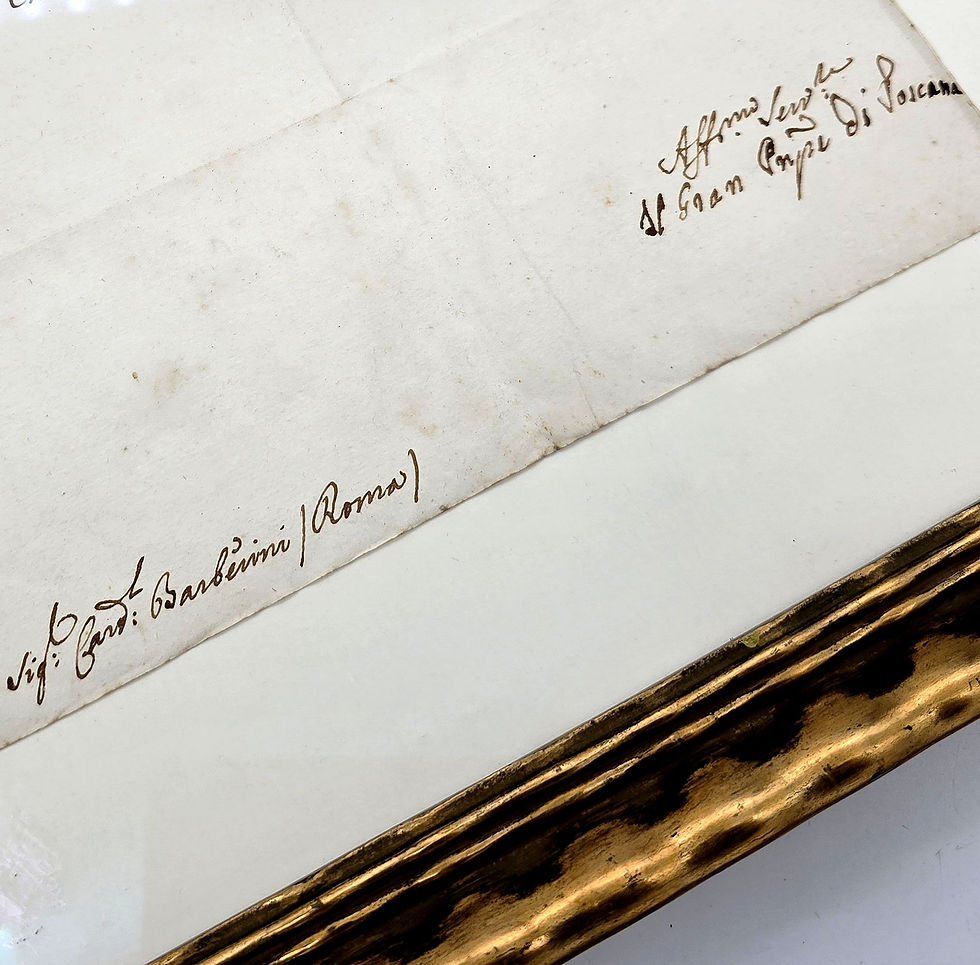 Affmo. Servre
Il Gran Prñpe di Toscana
Sigr: Cardl: Barberini (Roma)